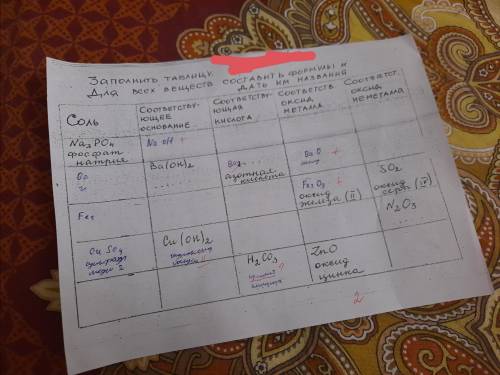 Заполнить таблицу.
Для всех веществ составить формулы и
дать им названия
Соль
Соответству-
ющее
основание
Соответству-
ющая
кислота
Соответств
оксид
метала
Соответст.
оксид
неметала
Na3PO4
фосфат
натрия
NaOH +
Ba(OH)2
азотная
кислота
BaO +
Fe2O3 +
оксид
железа (II)
SO2
оксид
серы (IV)
N2O3
...
CuSO4
Cu(OH)2
H2CO3
ZnO
оксид
цинка
2